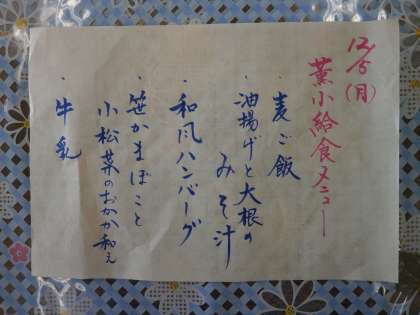 12/5(月)
薫小給食メニュー
・麦ご飯
・油揚げと大根の
みそ汁
・和風ハンバーグ
・笹かまぼこと
小松菜のおかか和え
・牛乳